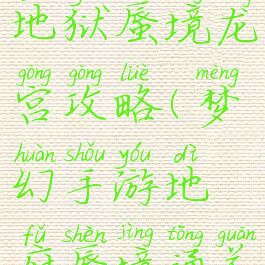 地狱蜃境龙
gōng gōng lüè mèng
宫攻略(梦
huàn shǒu yóu dì
幻手游地
fǔ shèn jìng tōng guān
府蜃境通关